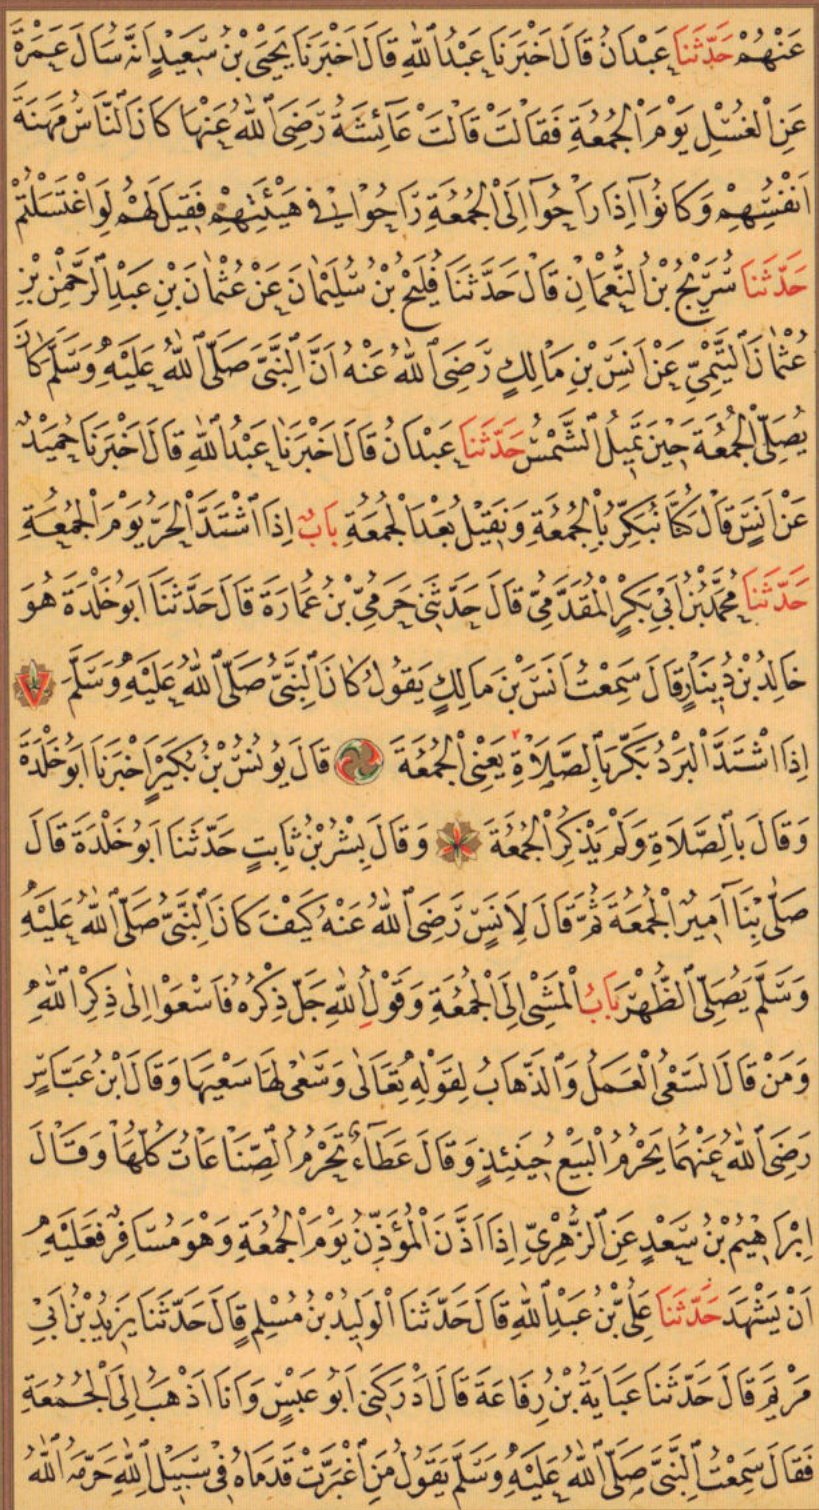 عَنْهُمْ حَدَّثَنَا عَبْدَانُ قَالَ اَخْبَرَنَا عَبْدُ اللّٰهِ قَالَ اَخْبَرَنَا يَحْيَى بْنُ سَعِيدٍ اَنَّهُ سَاَلَ عَمْرَةَ
عَنِ الْغُسْلِ يَوْمَ الْجُمُعَةِ فَقَالَتْ قَالَتْ عَائِشَةُ رَضِيَ اللّٰهُ عَنْهَا كَانَ النَّاسُ مَهَنَةَ
اَنْفُسِهِمْ وَكَانُوا اِذَا رَاحُوا اِلَى الْجُمُعَةِ رَاحُوا فِي هَيْئَتِهِمْ فَقِيلَ لَهُمْ لَوِ اغْتَسَلْتُمْ
حَدَّثَنَا سُرَيْجُ بْنُ النُّعْمَانِ قَالَ حَدَّثَنَا فُلَيْحُ بْنُ سُلَيْمٰانَ عَنْ عُثْمٰانَ بْنِ عَبْدِ الرَّحْمٰنِ بْنِ
عُثْمٰانَ التَّيْمِيِّ عَنْ اَنَسِ بْنِ مٰالِكٍ رَضِيَ اللّٰهُ عَنْهُ اَنَّ النَّبِيَّ صَلَّى اللّٰهُ عَلَيْهِ وَسَلَّمَ كَانَ
يُصَلِّي الْجُمُعَةَ حِينَ تَمِيلُ الشَّمْسُ حَدَّثَنَا عَبْدَانُ قَالَ اَخْبَرَنَا عَبْدُ اللّٰهِ قَالَ اَخْبَرَنَا حُمَيْدٌ
عَنْ اَنَسٍ قَالَ كُنَّا نُبَكِّرُ بِالْجُمُعَةِ وَنَقِيلُ بَعْدَ الْجُمُعَةِ بَابٌ اِذَا اشْتَدَّ الْحَرُّ يَوْمَ الْجُمُعَةِ
حَدَّثَنَا مُحَمَّدُ بْنُ اَبِي بَكْرٍ الْمُقَدَّمِيُّ قَالَ حَدَّثَنِي حَرَمِيُّ بْنُ عُمَارَةَ قَالَ حَدَّثَنَا اَبُو خَلْدَةَ هُوَ
خَالِدُ بْنُ دِينَارٍ قَالَ سَمِعْتُ اَنَسَ بْنَ مَالِكٍ يَقُولُ كَانَ النَّبِيُّ صَلَّى اللّٰهُ عَلَيْهِ وَسَلَّمَ
اِذَا اشْتَدَّ الْبَرْدُ بَكَّرَ بِالصَّلَاةِ يَعْنِي الْجُمُعَةَ قَالَ يُونُسُ بْنُ بُكَيْرٍ اَخْبَرَنَا اَبُو خَلْدَةَ
وَقَالَ بِالصَّلَاةِ وَلَمْ يَذْكُرِ الْجُمُعَةَ وَقَالَ بِشْرُ بْنُ ثَابِتٍ حَدَّثَنَا اَبُو خَلْدَةَ قَالَ
صَلَّى بِنَا اَمِيرٌ الْجُمُعَةَ ثُمَّ قَالَ لِاَنَسٍ رَضِيَ اللّٰهُ عَنْهُ كَيْفَ كَانَ النَّبِيُّ صَلَّى اللّٰهُ عَلَيْهِ
وَسَلَّمَ يُصَلِّي الظُّهْرَ بَابُ الْمَشْيِ اِلَى الْجُمُعَةِ وَقَوْلِ اللّٰهِ جَلَّ ذِكْرُهُ فَاسْعَوْا اِلٰى ذِكْرِ اللّٰهِ
وَمَنْ قَالَ السَّعْيُ الْعَمَلُ وَالذَّهَابُ لِقَوْلِهِ تَعَالٰى وَسَعٰى لَهَا سَعْيَهَا وَقَالَ ابْنُ عَبَّاسٍ
رَضِيَ اللّٰهُ عَنْهُمَا يَحْرُمُ الْبَيْعُ حِينَئِذٍ وَقَالَ عَطَاءٌ تَحْرُمُ الصِّنَاعَاتُ كُلُّهَا وَقَالَ
اِبْرَاهِيمُ بْنُ سَعْدٍ عَنِ الزُّهْرِيِّ اِذَا اَذَّنَ الْمُؤَذِّنُ يَوْمَ الْجُمُعَةِ وَهْوَ مُسَافِرٌ فَعَلَيْهِ
اَنْ يَشْهَدَ حَدَّثَنَا عَلِيُّ بْنُ عَبْدِ اللّٰهِ قَالَ حَدَّثَنَا الْوَلِيدُ بْنُ مُسْلِمٍ قَالَ حَدَّثَنَا يَزِيدُ بْنُ اَبِي
مَرْيَمَ قَالَ حَدَّثَنَا عَبَايَةُ بْنُ رِفَاعَةَ قَالَ اَدْرَكَنِي اَبُو عَبْسٍ وَاَنَا اَذْهَبُ اِلَى الْجُمُعَةِ
فَقَالَ سَمِعْتُ النَّبِيَّ صَلَّى اللّٰهُ عَلَيْهِ وَسَلَّمَ يَقُولُ مَنِ اغْبَرَّتْ قَدَمَاهُ فِي سَبِيلِ اللّٰهِ حَرَّمَهُ اللّٰهُ